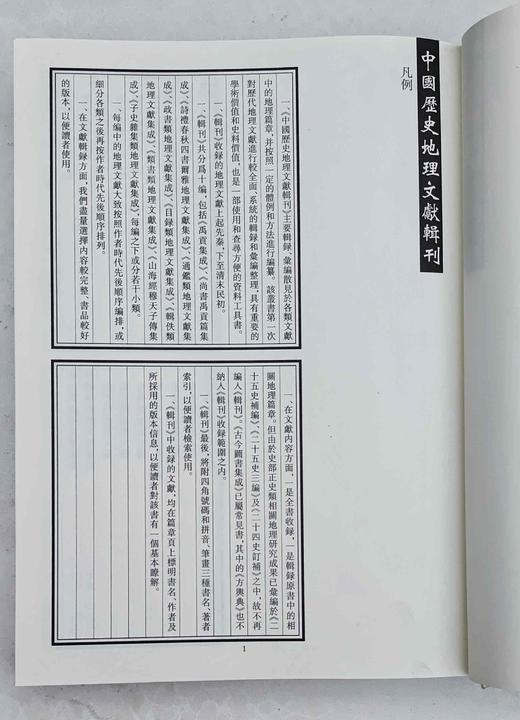 中國歷史地理文獻輯刊
凡例
一、《中國歷史地理文獻輯刊》主要輯録、彙編散見於各類文獻
中的地理篇章，并按照一定的體例和方法進行編纂。該叢書第一次
對歷代地理文獻進行較全面、系統的輯録和彙編整理，具有重要的
學術價值和史料價值，也是一部使用和查尋方便的資料工具書。
一、《輯刊》收録的地理文獻上起先秦，下至清末民初。
一、《輯刊》共分爲十編，包括《禹貢集成》、《尚書禹貢篇集
成》、《詩禮春秋四書爾雅地理文獻集成》、《通鑑類地理文獻集
成》、《政書類地理文獻集成》、《目録類地理文獻集成》、《輯佚類
地理文獻集成》、《類書類地理文獻集成》、《山海經穆天子傳集
成》、《子史雜集類地理文獻集成》，每編之下或分若干小類。
一、每編中的地理文獻大致按照作者時代先後順序編排，或
細分各類之後再按作者時代先後順序排列。
一、在文獻輯録方面，我們盡量選擇内容較完整、書品較好
的版本，以便讀者使用。
一、在文獻内容方面，一是全書收録，一是輯録原書中的相
關地理篇章。但由於史部正史類相關地理研究成果已彙編於《二
十五史補編》、《二十五史三編》及《二十四史訂補》之中，故不再
編入《輯刊》。《古今圖書集成》已屬常見書，其中的《方輿典》也不
納入《輯刊》收録範圍之内。
一、《輯刊》最後，將附四角號碼和拼音、筆畫三種書名、著者
索引，以便讀者檢索使用。
一、《輯刊》中收録的文獻，均在篇章頁上標明書名、作者及
所採用的版本信息，以便讀者對該書有一個基本瞭解。
1